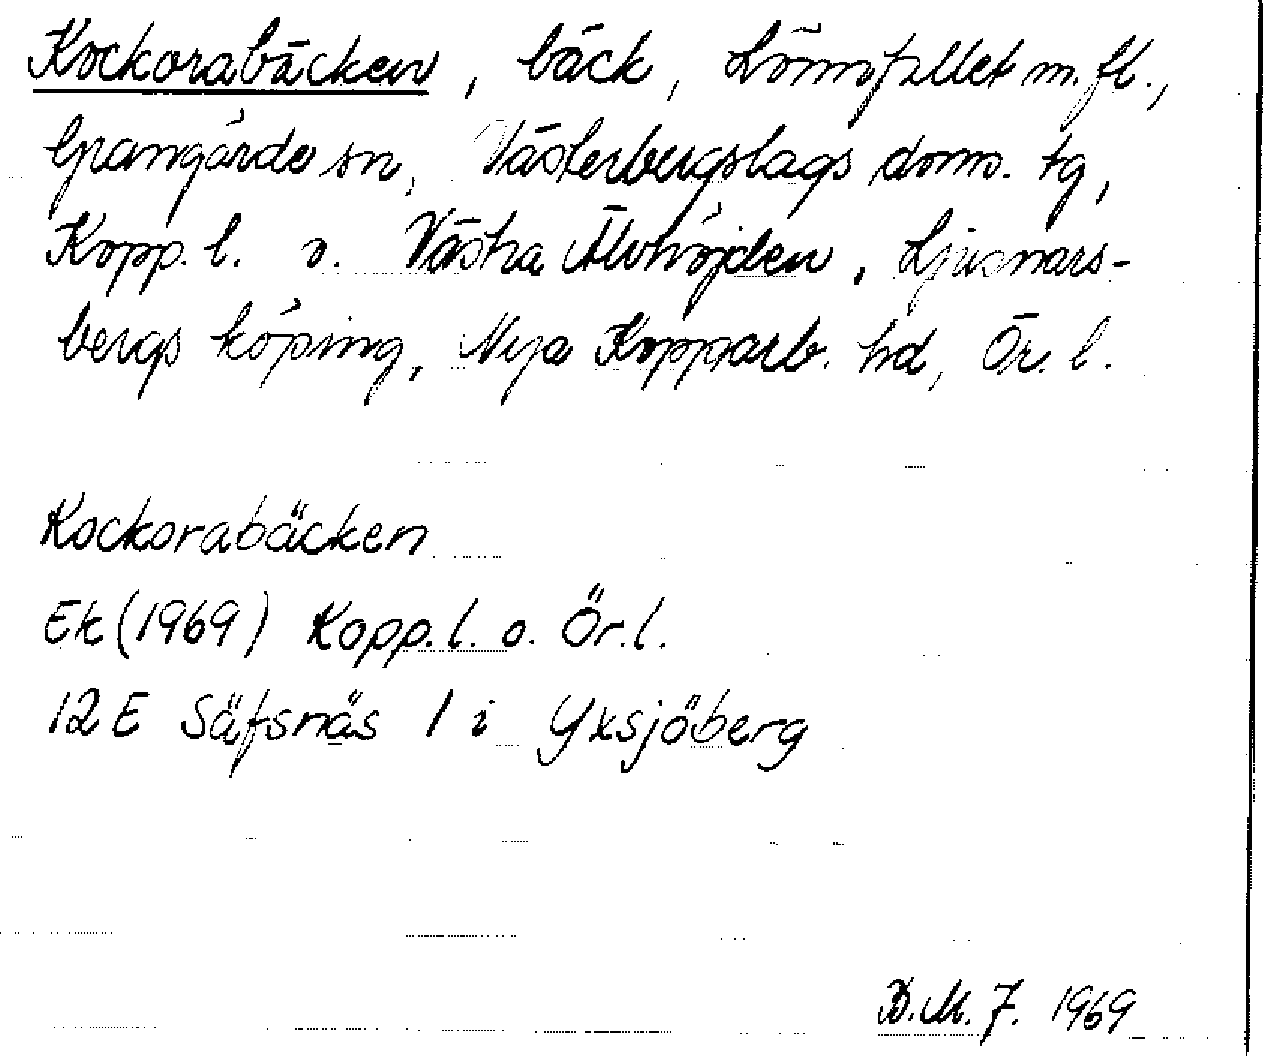 Kockorabäcken, bäck, Lömpfallet m.fl.,
Grangärde sn, Västerbergslags doms. tg,
Kopp. l. o. Västra Älvhöjden, Ljusnars-
bergs köping, Nya Kopparb. hd, Ör. l.
Kockorabäcken
Ek (1969) Kopp. l. o. Ör. l.
12 E Säfsnäs 1 i Yxsjöberg
B.M.J. 1969